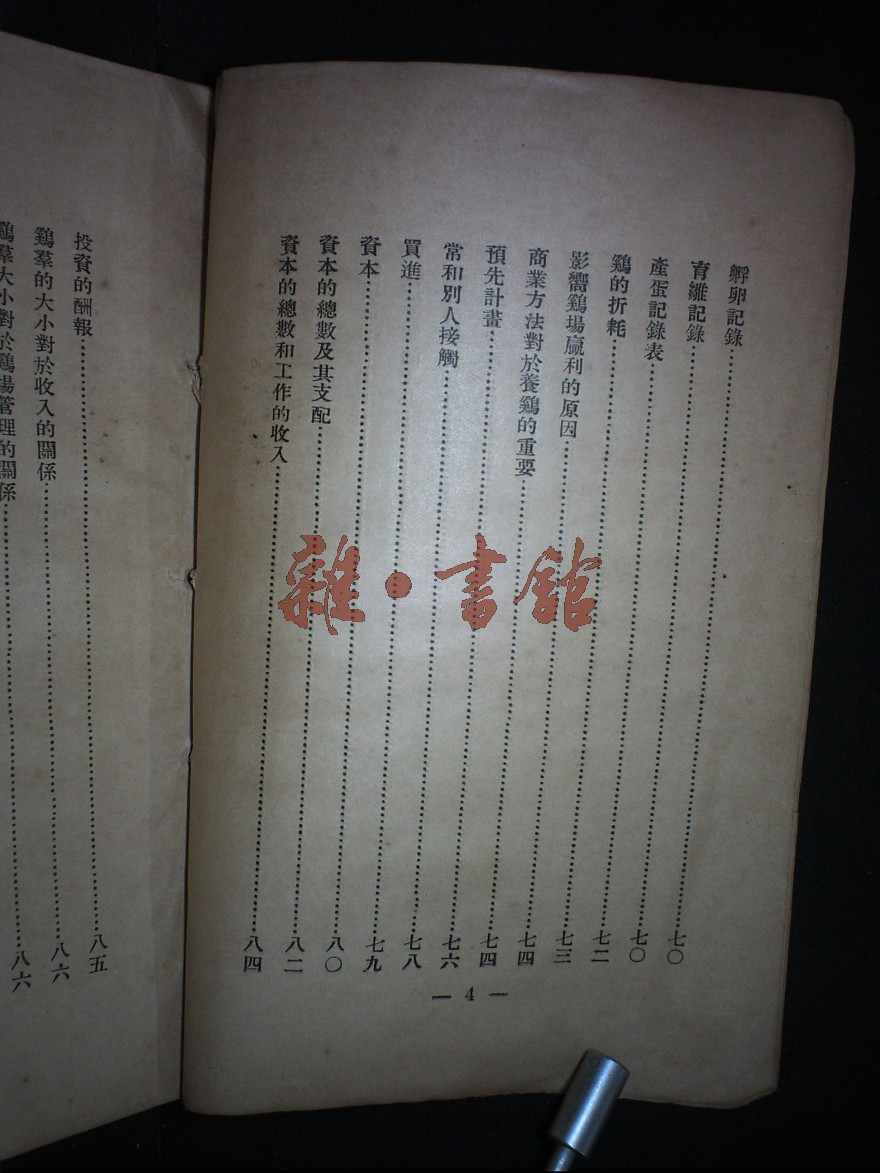 孵卵記錄……七〇
育雛記錄……七〇
產蛋記錄表……七二
鷄的折耗……七三
影嚮鷄場贏利的原因……七四
商業方法對於養鷄的重要……七四
預先計畫……七六
常和別人接觸……七八
買進……七九
資本……八〇
資本的總數及其支配……八二
資本的總數和工作的收入……八四
— 4 —
投資的酬報……八五
鷄羣的大小對於收入的關係……八六
鷄羣大小對於鷄場管理的關係……八六
雜·書館